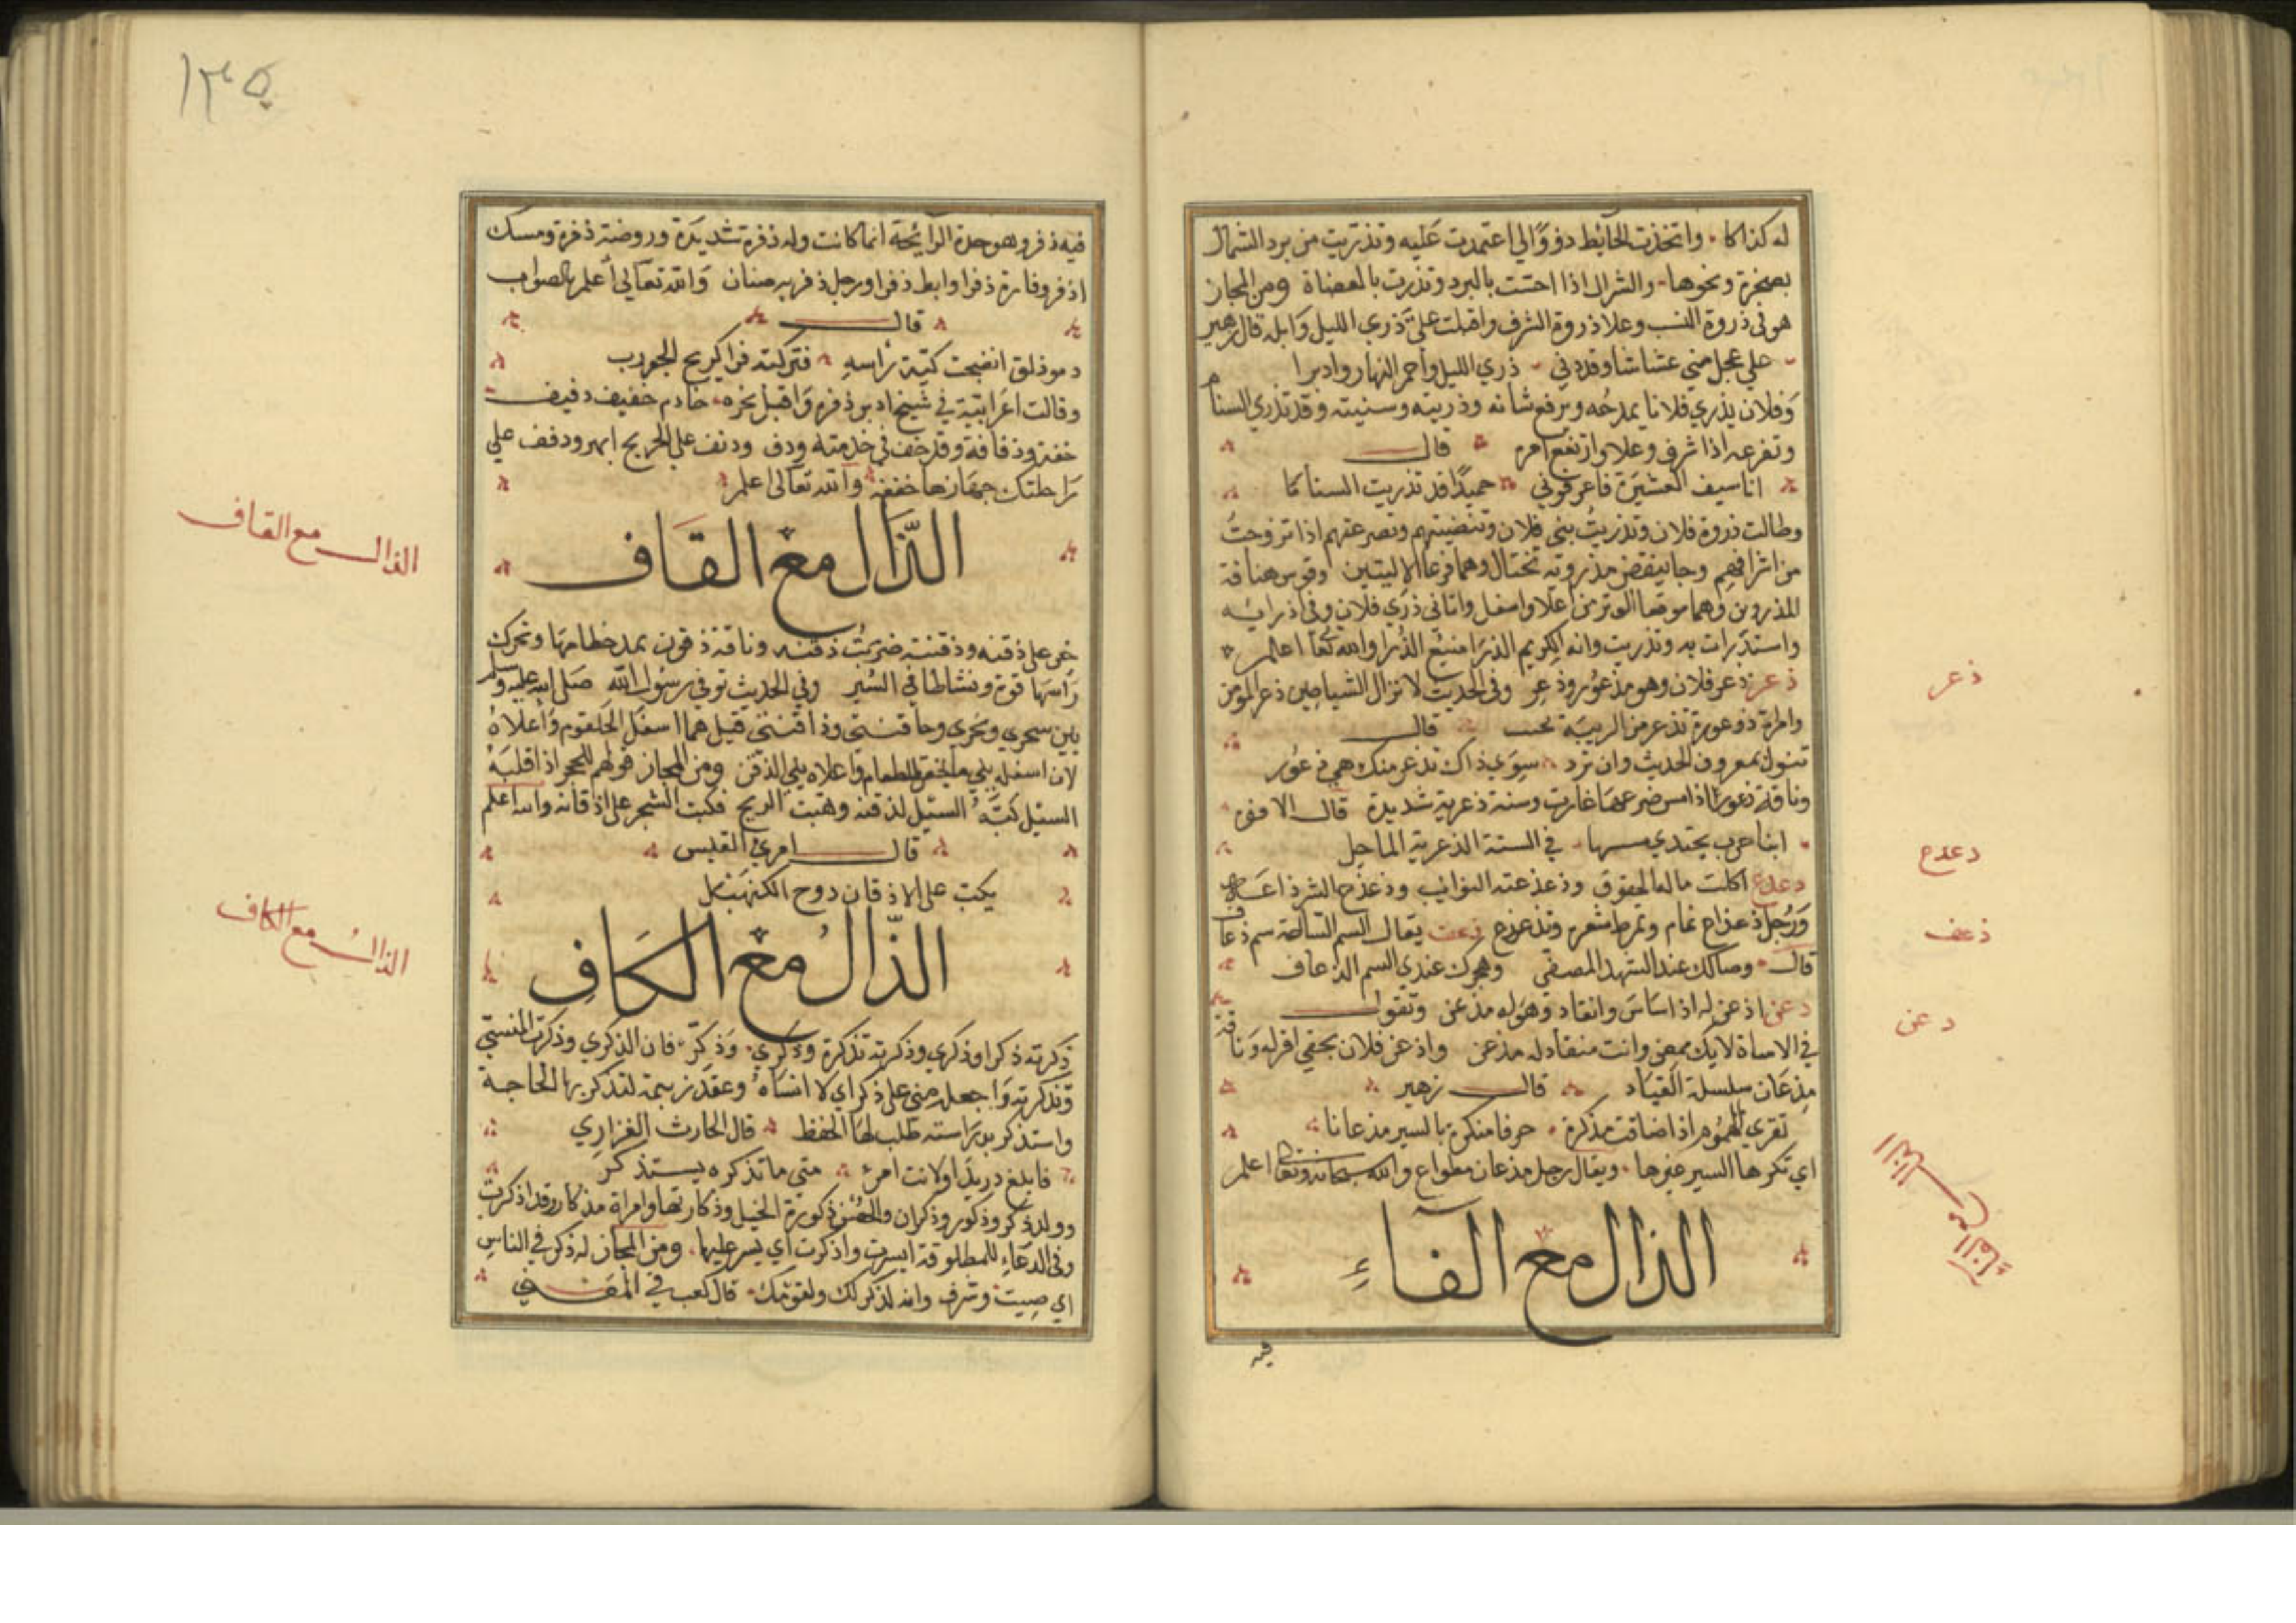 له كذاكا واتخذت الحائط دفوًا الي اعتمدت عليه وتذريت من برد الشمال
بصخرة ونحوها والشرال اذا احتت بالبرد وتذرت بالعضاة ومن المجاز
هو في ذروة النسب وعلا ذروة الشرف واقبلت عليّ ذري الليل وابله قال زهير
علي عجل مني عشاشا وقددني ذري الليل وأحمر النهار وادبرا
وفلان يذري فلانا يمدحُه ويرفع شانه وذريته وسنيته وقد تذري السنام
وتفرعه اذا شرف وعلا وارتفع امره قال
انا سيف العشيرة فاعرفوني حميدًا قد تذريت السناما
وطالت ذروة فلان وتذريتُ بني فلان وتنضيتهم وتصرعتهم اذا تزوجتُ
من اشرافهم وجا ينفض مذرويه تختال وهما فرعا الاليتين وقوس هنافة
المذروين وهما موقعا الوتر من اعلا واسفل واتاني ذري فلان وفي اذرايه
واستذرات به وتذريت وانه لكريم الذرا منيع الذُرا والله تعا اعلم
ذعر ذعر فلان وهو مذعور وذعِر وفي الحديث لا تزال الشياطين ذعر المومن
وامراة ذوعورة تذعر من الريبة قال
تنول بمعروف الحديث وان ترد سوي ذاك تذعر منك هي ذعور
وناقة ذعورٌ اذا مس ضرعها غارت وسنة ذعرية شديدة قال الافوه
ابنا حرب يجتدي في السنة الذعرية الماحل
دعذع اكلت ماله الحقوق وذعذعته النوائب وذعذع الشر ذاعه
ورُجل ذعذاع نمام وتمرط شعره وتذعذع ذعف يقال السم الساعة سم ذعاف
قال وصالك عند الشهد المصفي وهجرك عندي السم الذعاف
دعن اذعن له اذا ساس وانقاد وهو له مذعن وتقول
في الاساة لا يك ممعن وانت منقاد له مذعن واذعن فلان بحقي اقر له وناقة
مِذعان سلسلة القياد قال زهير
تقري الهموم اذا ضاقت مذكرة حرفا منكرة بالسير مذعانا
اي تكرها السير غيرها ويقال رجل مذعان مطواع والله سبحانه وتعا اعلم
الذال مع الفاءِ
فيه
ذعر
دعدع
ذعف
دعن
١٣٥
فيه ذفر وهو حدة الرائحة انما كانت وله ذفرة شديدة وروضة ذفرة ومسك
اذفر وفارة ذفرا وابط ذفرا ورجل ذفر به صنان والله تعالي أعلم بالصواب
قال
دموذلق انضجت كية راسه فتركته ذفرا كريح الجورب
وقالت اعرابية في شيخ ادبر ذفره واقبل بخره خادم خفيف دفيف
خفة وذفافة وقد خف في خدمته ودف ودفف علي الجريح ابهر ودفف علي
راحلتك جهازها خففه والله تعالي اعلم
الذَّال مع القَاف
خر علي ذقنه وذقنته ضربتُ ذقنه وناقة ذقون بمد خطامها وتحرك
راسها قوة ونشاطا في السير وفي الحديث توفي رسول الله صلي الله عليه وسلم
بين سحري ونحري وحاقنتي وذاقنتي قيل هما اسفل الحلقوم وأعلاه
لان اسفله يلي ما يحقن الطعام واعلاه يلي الذقن ومن المجاز قولهم للحجر اذا قلبَهُ
السيل كبَّهُ السيل لذقنه وهبت الريح فكبت الشجر علي اذقانه والله اعلم
قال امري القيس
يكبّ علي الاذقان دوح الكنهبَل
الذّالُ مع الكَافِ
ذكرته ذكرا وذكري وذكرته تذكرة وذكري وَذكّر فان الذكري وذكرت المنسيّ
وتذكرته واجعله مني علي ذكر اي لا انساهُ وعقد رتيمة لتذكر بها الحاجة
واستذكر بدراسته طلب لها الحفظ قال الحارث الفزاري
فابلغ دريدًا ولانت امرء متي ما تذكره يستذكر
وولد ذكر وذكور وذكران والحصن ذكورة الخيل وذكارتها وامراة مذكار وقد اذكرت
وفي الدعاءِ للمطلوقة ايسرت واذكرت اي يسر عليها ومن المجاز له ذكر في الناسِ
اي صِيت وشرف وانه لذكر لك ولقومك قال كعب في المقفي
الذالـ مع القاف
الذالُ مع الكاف